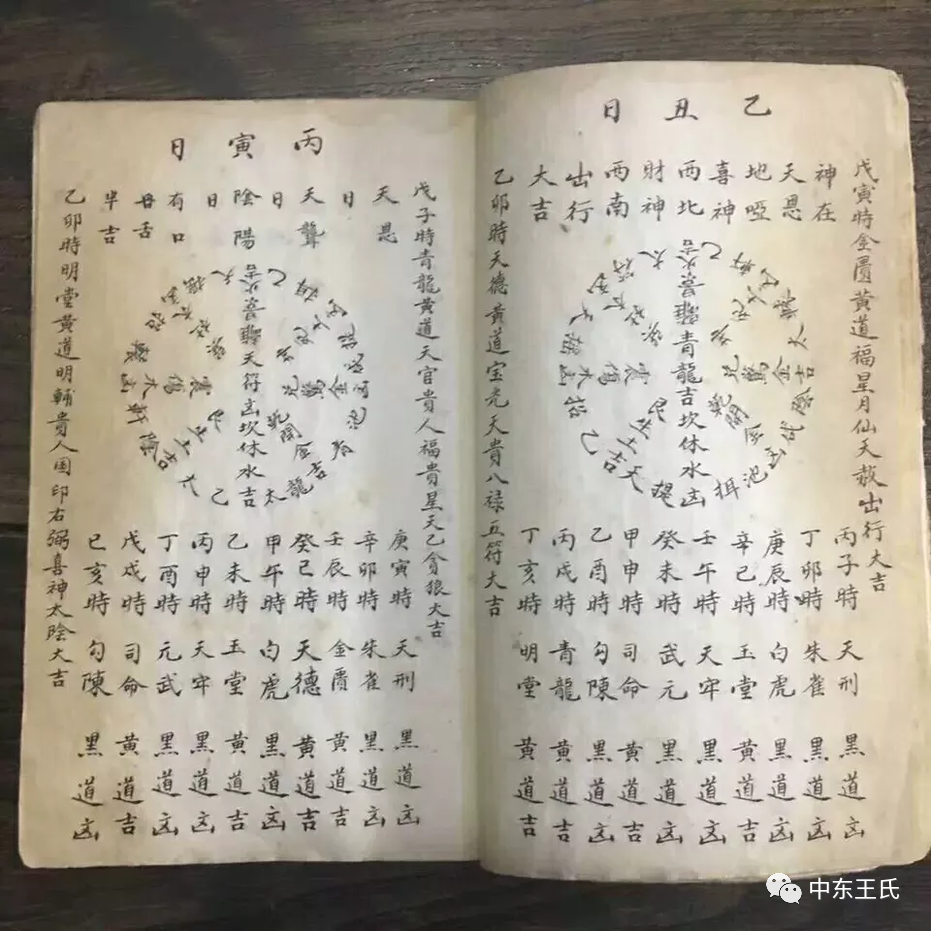 乙丑日
戊寅時金匱黃道福星月仙天赦出行大吉
神在
天恩
地啞
喜神
西北
財神
西南
出行
大吉
離景火吉
青龍吉坎休水凶
乾開金
丙子時天刑黑道凶
丁卯時朱雀黑道凶
庚辰時白虎黑道凶
辛巳時玉堂黃道吉
壬午時天牢黑道凶
癸未時武元黑道凶
甲申時司命黃道吉
乙酉時勾陳黑道凶
丙戌時青龍黃道吉
丁亥時明堂黃道吉
乙卯時天德黃道宝光天貴八禄五符大吉
丙寅日
戊子時青龍黃道天官貴人福貴星天乙貪狼大吉
天恩
日
天聾
日
陰陽
日
有口
毋舌
半吉
離景火吉
天符凶坎休水吉
乾開金吉
庚寅時天刑黑道凶
辛卯時朱雀黑道凶
壬辰時金匱黃道吉
癸巳時天德黃道吉
甲午時白虎黑道凶
乙未時玉堂黃道吉
丙申時天牢黑道凶
丁酉時元武黑道凶
戊戌時司命黃道吉
己亥時勾陳黑道凶
乙卯時明堂黃道明輔貴人国印右弼喜神太陰大吉
中东王氏